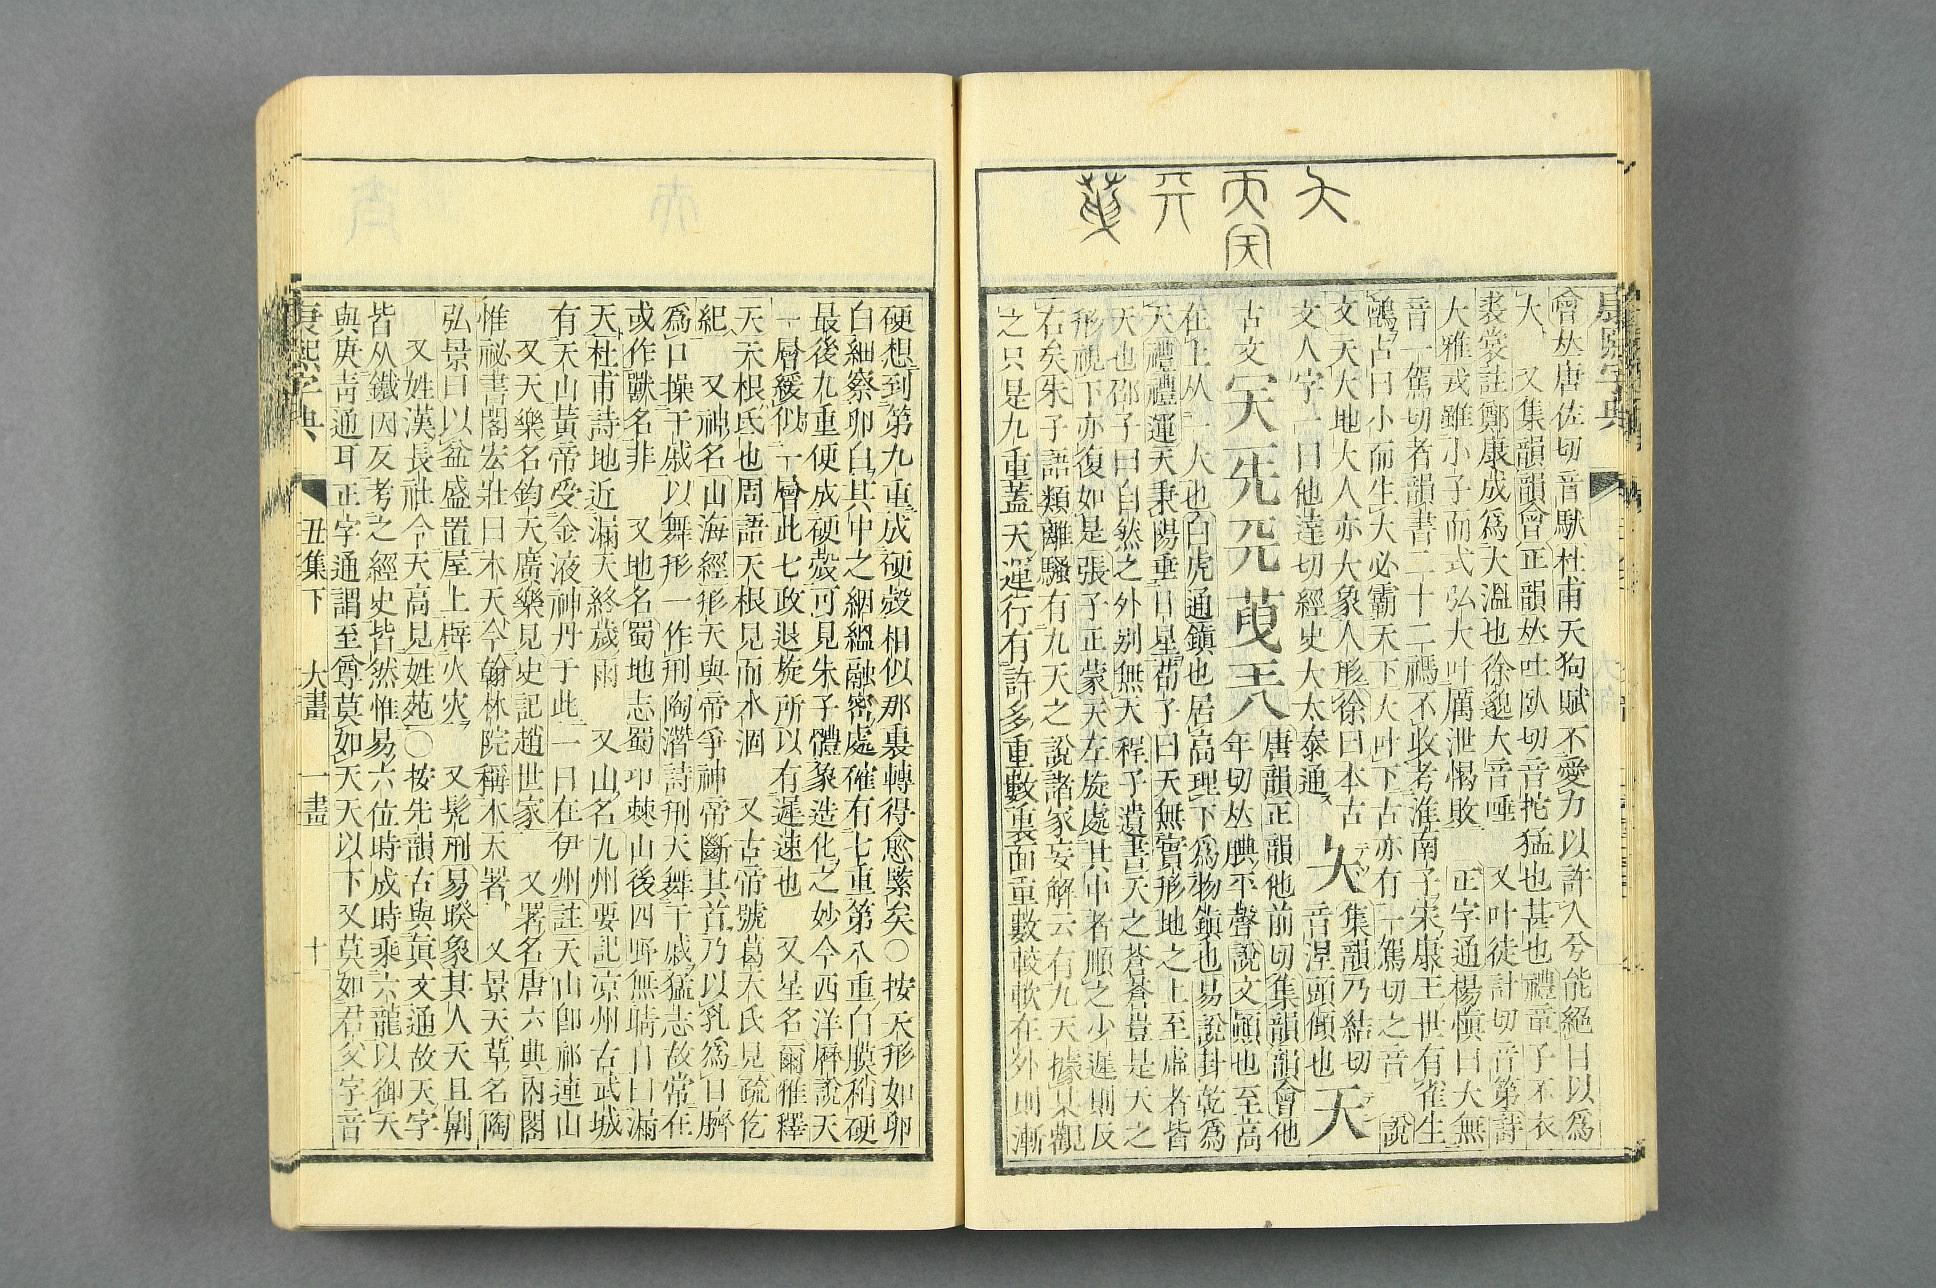 康熙字典
會𠀤唐佐切音馱杜甫天狗賦不愛力以許人兮能絕目以爲
大 又集韻韻會正韻𠀤吐臥切音拕猛也甚也禮童子不衣
裘裳註鄭康成爲大溫也徐邈大音唾 又叶徒計切音第詩
大雅戎雖小子而式弘大叶厲泄愒敗 正字通楊愼曰大無
音一駕切者韻書二十二禡不收考淮南子宋康王世有雀生
鸇占曰小而生大必霸天下大叶下古亦有一駕切之音 說
文天大地大人亦大象人形徐曰本古
文人字一曰他達切經史大太泰通
夨 集韻乃結切
音涅頭傾也
天
古文
唐韻正韻他前切集韻韻會他
年切𠀤腆平聲說文顚也至高
在上从一大也白虎通鎭也居高理下爲物鎭也易說卦乾爲
天禮禮運天秉陽垂日星荀子曰天無實形地之上至虛者皆
天也邵子曰自然之外別無天程子遺書天之蒼蒼豈是天之
形視下亦復如是張子正蒙天左旋處其中者順之少遲則反
右矣朱子語類離騷有九天之說諸家妄解云有九天據某觀
之只是九重蓋天運行有許多重數裏面重數較軟在外則漸
硬想到第九重成硬殼相似那裏轉得愈緊矣○按天形如卵
白細察卵白其中之絪縕融密處確有七重第八重白膜稍硬
最後九重便成硬殼可見朱子體象造化之妙今西洋曆說天
一層緩似一層此七政退旋所以有遲速也 又星名爾雅釋
天天根氐也周語天根見而水涸 又古帝號葛天氏見疏仡
紀 又神名山海經形天與帝爭神帝斷其首乃以乳爲目臍
爲口操干戚以舞形一作刑陶潛詩刑天舞干戚猛志故常在
或作獸名非 又地名蜀地志蜀卭棘山後四野無晴日曰漏
天杜甫詩地近漏天終歲雨 又山名九州要記涼州古武城
有天山黃帝受金液神丹于此一曰在伊州註天山卽祁連山
又天樂名鈞天廣樂見史記趙世家 又署名唐六典內閣
惟祕書閣宏壯曰木天今翰林院稱木天署 又景天草名陶
弘景曰以盆盛置屋上辟火灾 又髡刑易睽象其人天且劓
又姓漢長社令天高見姓苑○按先韻古與眞文通故天字
皆从鐵因反考之經史皆然惟易六位時成時乘六龍以御天
與庚靑通耳正字通謂至尊莫如天天以下又莫如君父字音
康熙字典 丑集下 大畫 一畫 十